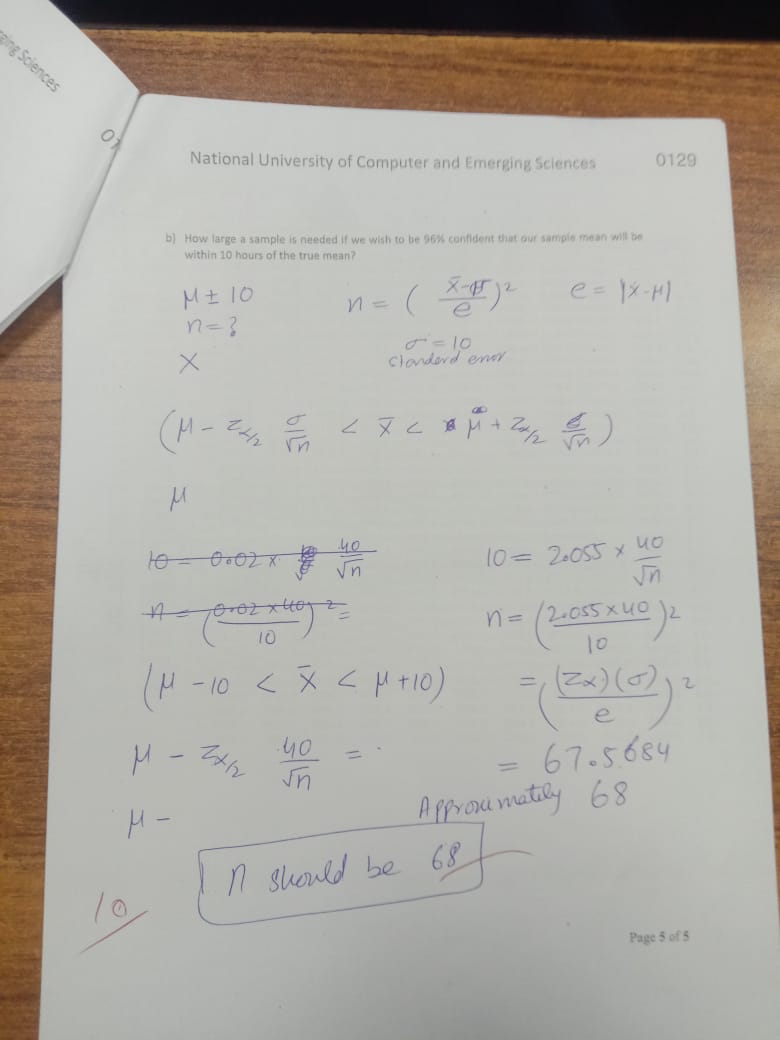 ging Sciences
National University of Computer and Emerging Sciences 0129
b) How large a sample is needed if we wish to be 96% confident that our sample mean will be
within 10 hours of the true mean?
μ ± 10
n = ?
X
n = ( x̄-μ / e )²
e = |x̄-μ|
σ = 10
Standerd error
(μ - Zα/2 σ/√n < x̄ < μ + Zα/2 σ/√n)
μ
10 = 0.02 × 40/√n
n = (0.02 × 40 / 10)² =
(μ - 10 < x̄ < μ + 10)
μ - Zα/2 40/√n = .
μ -
10 = 2.055 × 40/√n
n = (2.055 × 40 / 10)²
= ((Zα)(σ) / e)²
= 67.5684
Approximately 68
n should be 68
10
Page 5 of 5